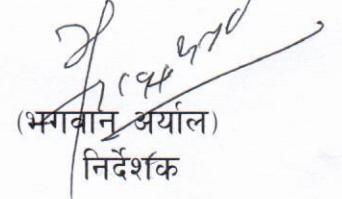 (भगवान् अर्याल)
निर्देशक